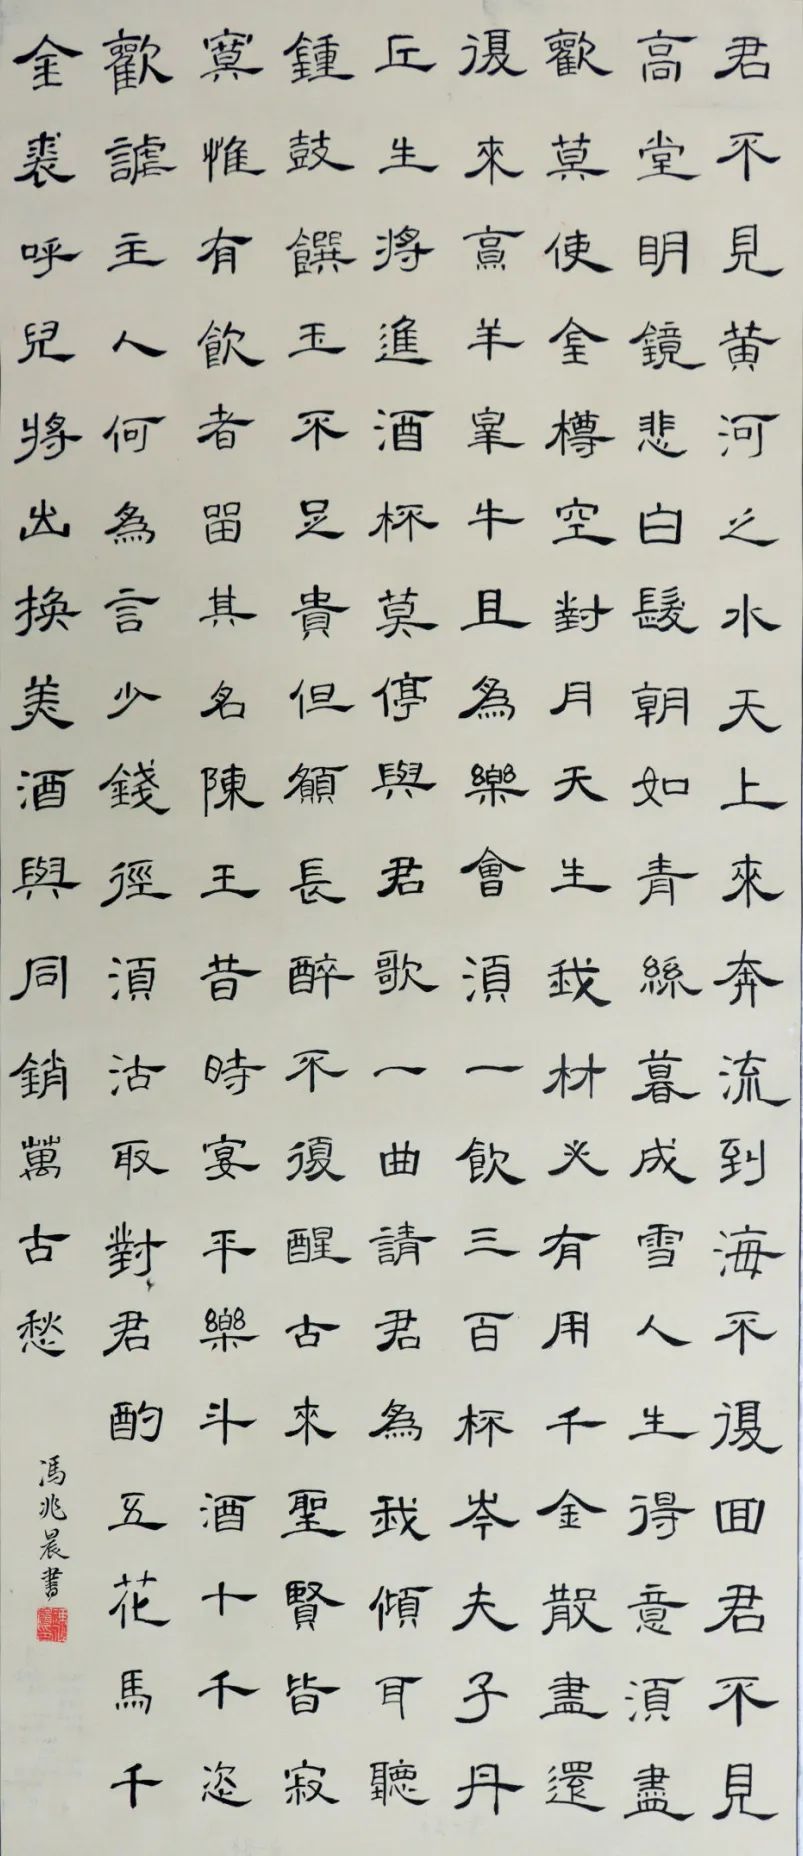 君不見黃河之水天上來奔流到海不復回君不見
高堂明鏡悲白髮朝如青絲暮成雪人生得意須盡
歡莫使金樽空對月天生我材必有用千金散盡還
復來烹羊宰牛且為樂會須一飲三百杯岑夫子丹
丘生將進酒杯莫停與君歌一曲請君為我傾耳聽
鍾鼓饌玉不足貴但願長醉不復醒古來聖賢皆寂
寞惟有飲者留其名陳王昔時宴平樂斗酒十千恣
歡謔主人何為言少錢徑須沽取對君酌五花馬千
金裘呼兒將出換美酒與同銷萬古愁
馮兆晨書